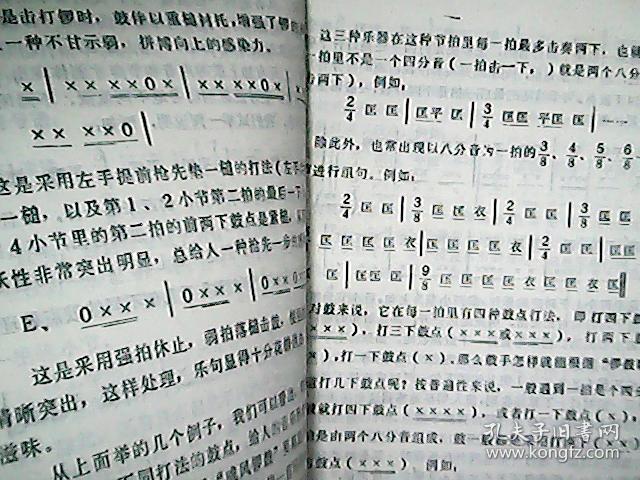 是击打锣时，鼓伴以重槌衬托，增强了锣
一种不甘示弱，拼搏向上的感染力。
× | ×× ××0× | ×× ××0× |
×× ××0 |
这是采用左手提前抢先垫一槌的打法（左手
一槌，以及第1、2小节第二拍的最后一下
4小节里的第二拍的前两下鼓点是重槌，
性非常突出明显，总给人一种抢先一步的
E、 0××× | 0××× | 0×0×
这是采用强拍休止，弱拍落槌击鼓，
清晰突出，这样处理，乐句显得十分
滋味。
从上面举的几个例子，我们可以看出，
不同打法的鼓点，给人的
一
这三种乐器在这种节拍里每一拍最多击奏两下，也
一拍里不是一个四分音（一拍击一下，）就是两个八分
两下），例如，
2/4 匡 匡 | 匡平 匡 | 3/4 匡匡 平匡 匡 | ……
除此外，也常出现以八分音为一拍的3/8、4/8、5/8、6/8
进行组句。例如，
2/4 匡 匡 | 3/8 匡 匡 衣 | 2/4 匡 匡 | 3/8 匡 匡
匡 匡 匡 匡 衣 | 匡 匡 匡 匡 匡 衣 | 2/4 匡 匡 | 匡匡
匡 | 匡匡 匡 | 9/8 匡 匡 匡 匡 衣 匡 匡 衣
对鼓来说，它在每一拍里有四种鼓点打法，即打四下鼓
×××），打三下鼓点（×××或×××），打两下
），打一下鼓点（×）。那么鼓手怎样就能根据“锣鼓
打几下鼓点呢？按普遍性来说，一般遇到一拍是个四
就打四下鼓点（××××），或者打一下鼓点（×），
是由两个八分音组成，鼓一般 打两下（××）
鼓点（×××）。例如，
孔夫子旧书网
www.kongfz.com